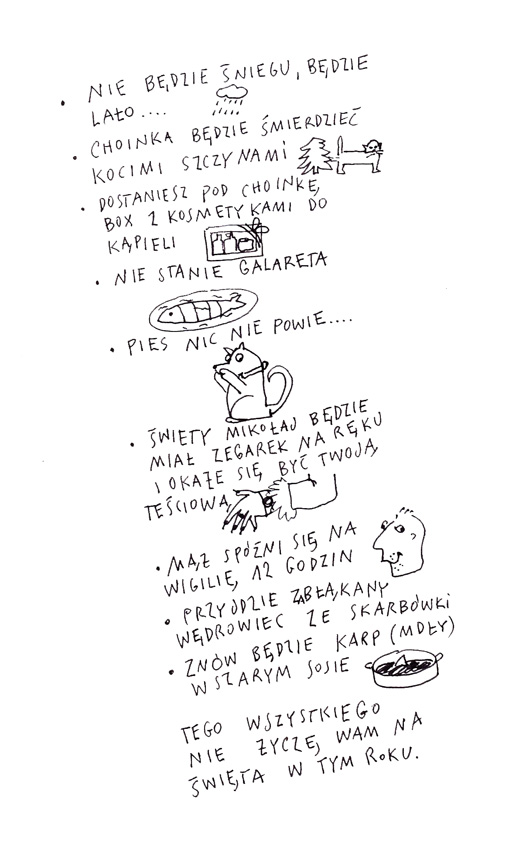 • NIE BĘDZIE ŚNIEGU, BĘDZIE
LAŁO....
• CHOINKA BĘDZIE ŚMIERDZIEĆ
KOCIMI SZCZYNAMI
• DOSTANIESZ POD CHOINKĘ
BOX Z KOSMETYKAMI DO
KĄPIELI
• NIE STANIE GALARETA
• PIES NIC NIE POWIE....
• ŚWIĘTY MIKOŁAJ BĘDZIE
MIAŁ ZEGAREK NA RĘKU
I OKAŻE SIĘ BYĆ TWOJĄ
TEŚCIOWĄ
• MĄŻ SPÓŹNI SIĘ NA
WIGILIĘ 12 GODZIN
• PRZYJDZIE ZBŁĄKANY
WĘDROWIEC ZE SKARBÓWKI
• ZNÓW BĘDZIE KARP (MDŁY)
W SZARYM SOSIE
TEGO WSZYSTKIEGO
NIE ŻYCZĘ WAM NA
ŚWIĘTA W TYM ROKU.